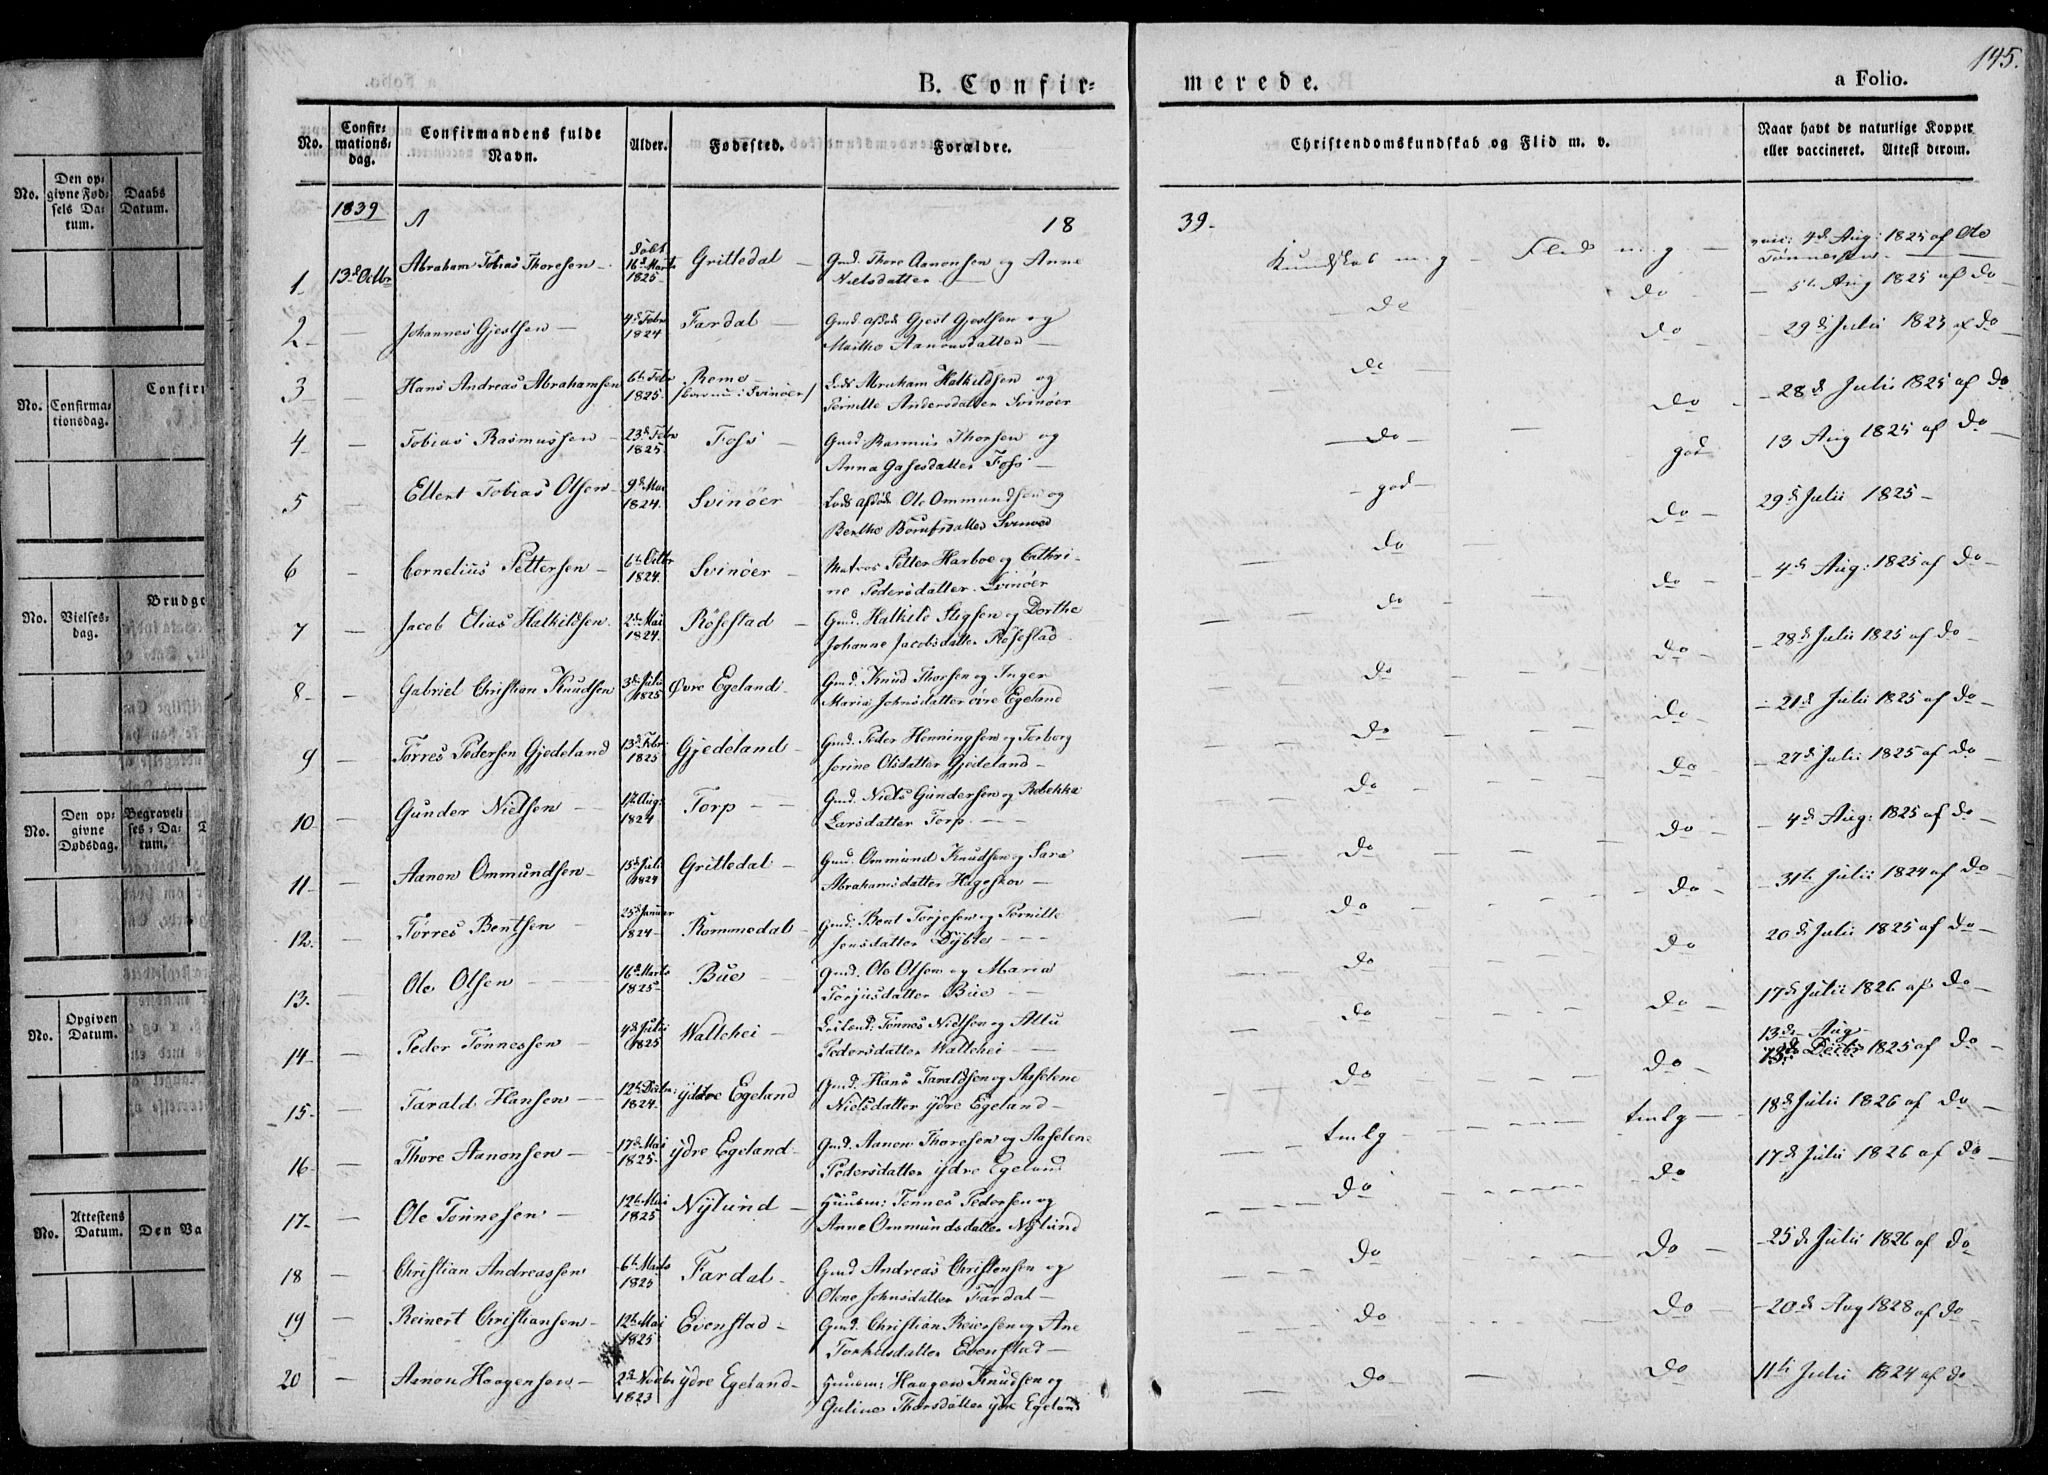 145.
B. Confir-
merede.
a Folio.
No.
Confir-
mations-
dag.
Confirmandens fulde
Navn.
Alder.
Fødested.
Forældre.
Christendomskundskab og Flid m. v.
Naar havt de naturlige Kopper
eller vaccineret. Attest derom.
1839
18
39.
1
13d Octbr
Abraham Tobias Thoresen
døbt
16d Marts
1825
Grittedal
Gmd. Thore Aanonsen og Anne
Nielsdatter
Kundskab m. g Flid m. g
4d Aug: 1825 af Ole
Tønnessen
2
Johannes Gjestsen
4d Febr
1824
Fardal
Gmd afdøde Gjest Gjestsen og
Marthe Aanonsdatter
do do
5te Aug 1825 af do
3
Hans Andreas Abrahamsen
6te Febr
1825.
Rome
Svinøer
Lods Abraham Halkildsen og
Pernille Andersdatter Svinøer
do do
29d Julii 1825 af do
4
Tobias Rasmussen
23d Febr
1825
Foss
Gmd: Rasmus Thorsen og
Anna Foss
do do
28d Julii 1825 af do
5
Ellert Tobias Olsen
9d Mai
1824.
Svinøer
Lods afdøde Ole Ommundsen og
Berthe Svinøer
god god
13 Aug 1825 af do
6
Cornelius Pettersen
6te Octbr
1824.
Svinøer
Matros Petter Harboe og Cathri-
ne Pedersdatter Svinøer
do do
29d Julii 1825
7
Jacob Elias Halkildsen
2d Mai
1824.
Røsestad
Gmd. Halkild Stigsen og Dorthe
Johanne Jacobsdatter Røsestad
do do
4d Aug: 1825 af do
8
Gabriel Christian Knudsen
3d Julii
1825
Øvre Egeland
Gmd. Knud Thorsen og Inger
Maria Johnsdatter øvre Egeland
do do
28d Julii 1825 af do
9
Tørres Pedersen Gjedeland
13d Febr:
1825
Gjedeland
Gmd. Peder Henningsen og Torborg
Jorine Olsdatter Gjedeland
do do
21d Julii 1825 af do
10
Gunder Nielsen
Aug:
1824
Torp
Gmd. Niels Gundersen og Rebekka
Larsdatter Torp
do do
27d Julii 1825 af do
11
Aanon Ommundsen
15d Juli
1824
Grittedal
Gmd. Ommund Knudsen og Sara
Abrahamsdatter Hageskov
do do
4d Aug: 1825 af do
12.
Tørres Bentsen
25d Januar
1824
Rommedal
Gmd. Bent Torjesen og Pernille
Jensdatter Dyble
do do
31te Julii 1824 af do
13.
Ole Olsen
16d Marts
1825
Bue
Gmd. Ole Olsen og Maria
Torjusdatter Bue
do do
20d Julii 1825 af do
14.
Peder Tønnessen
4d Julii
1825
Wattehei
Leilend: Tønnes Nielsen og Allu
Pedersdatter Wattehei
do do
17d Julii 1826 af do
15
Tarald Hansen
12te Decbr:
1824.
ydre Egeland
Gmd. Hans Taraldsen og Asselene
Nielsdatter ydre Egeland
do do
13de Aug
1825 af do
16
Thore Aanonsen
17d Mai
1825.
ydre Egeland
Gmd. Aanon Thoresen og Aaselene
Pedersdatter ydre Egeland
tmlg tmlg
18d Julii 1826 af do
17.
Ole Tønnesen
12te Mai
1825
Nylund
Huusm: Tønnes Pedersen og
Anne Ommundsdatter Nylund
do do
17d Julii 1826 af do
18
Christian Andreassen
6te Marts
1825
Fardal
Gmd Andreas Christensen og
Olene Johnsdatter Fardal
do do
25d Julii 1826 af do
19
Reinert Christiansen
12te Mai
1825
Evenstad
Gmd. Christian Reiersen og Ane
Torkelsdatter Evenstad
do do
20d Aug 1828 af do
20
Aanon Haagensen
2d Novbr
1823
ydre Egeland
Huusm: Haagen Knudsen og
Guline Thorsdatter ydre Egeland
do do
11te Julii 1824 af do
No.
Den op-
givne Fød-
sels Da-
tum.
Daabs
Datum.
No.
Confirma-
tionsdag.
Confirm
No.
Vielses-
dag.
Brudge
No.
Den op-
givne
Dødsdag.
Begravel-
ses-Da-
tum.
No.
Opgiven
Datum.
No.
Attestens
Datum.
Den Va